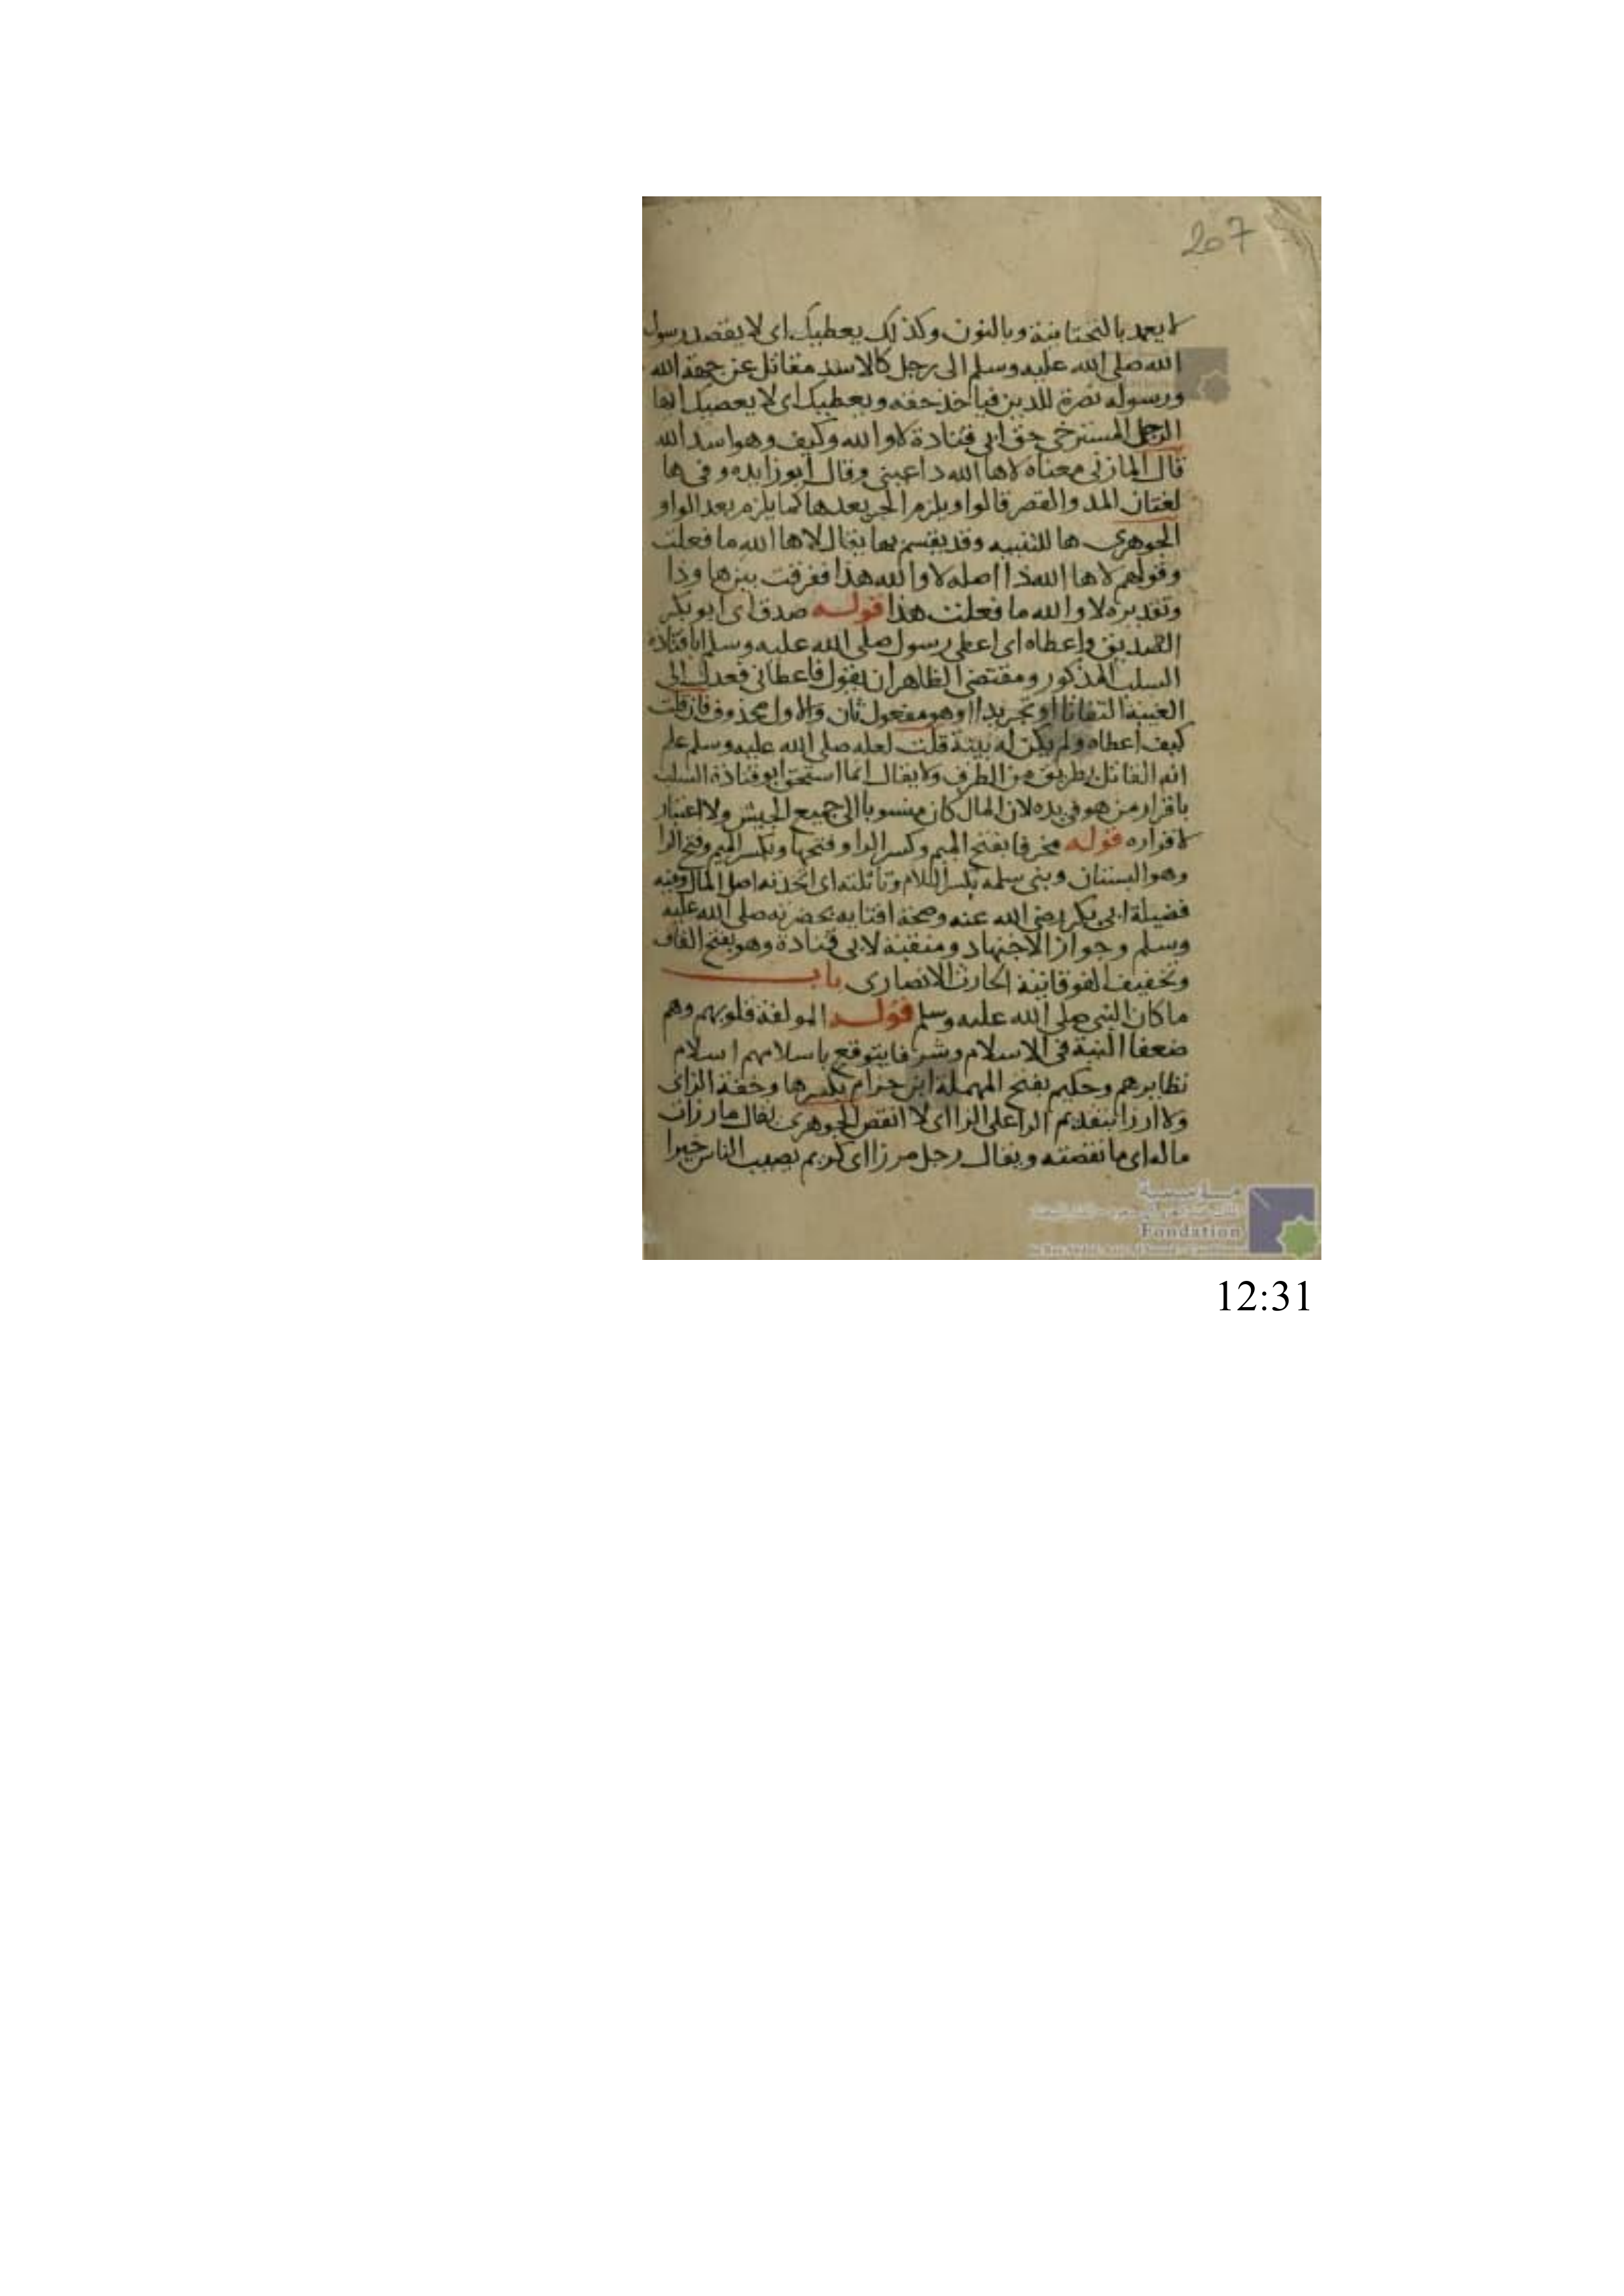 207
لا يعمد بالتحتانية وبالنون وكذلك يعطيك اى لا يقصد رسول
الله صلى الله عليه وسلم الى رجل كالاسد مقاتل عن جهة الله
ورسوله نصرة للدين فياخذ حقه ويعطيك اى لا يعصيك ايها
الرجل المسترخي حق ابي قتادة لا والله وكيف وهو اسد الله
قال المازني معناه لاها الله ذا وقال ابو زايده وفي ها
لغتان المد والقصر قالوا ويلزم الجر بعدها كما يلزم بعد الواو
الجوهرى ها للتنبيه وقد يقسم بها يقال لاها الله ما فعلت
وقولهم لاها الله ذا اصله لا والله هذا ففرقت بين ها وذا
وتقديره لا والله ما فعلت هذا قوله صدق اى ابو بكر
الصديق واعطاه اى اعطى رسول صلى الله عليه وسلم ابا قتادة
السلب المذكور ومقتضى الظاهر ان يقول فاعطانى فعدل الى
الغيبة التفاتا او تجريدا او هو مفعول ثان والاول محذوف فان قلت
كيف اعطاه ولم يكن له بينة قلت لعله صلى الله عليه وسلم علم
انه القاتل بطريق من الطرق ولا يقال انما استحق ابو قتادة السلب
باقرار من هو في يده لان المال كان منسوبا الى جميع الجيش ولا اعتبار
لاقراره قوله مخرفا بفتح الميم وكسر الرا وفتحها وبكسر الميم وفتح الرا
وهو البستان وبنى سلمه بكسر اللام وتاثلته اى اتخذته اصل المال وفيه
فضيلة ابي بكر رضى الله عنه وصحة افتايه بحضرته صلى الله عليه
وسلم وجواز الاجتهاد ومنقبة لابى قتادة وهو بفتح القاف
وتخفيف الفوقانية الحارث الانصارى باب
ما كان النبي صلى الله عليه وسلم قوله المولفة قلوبهم وهم
ضعفا النية فى الاسلام وشرفا يتوقع باسلامهم اسلام
نظايرهم وحكيم بفتح المهملة ابن حزام بكسرها وخفة الزاى
ولا ارزا بتقديم الرا على الزا اى لا انقص الجوهرى يقال ما رزات
ماله اى ما نقصته ويقال رجل مرزا اى كريم يصيب الناس خيرا
Fondation
12:31